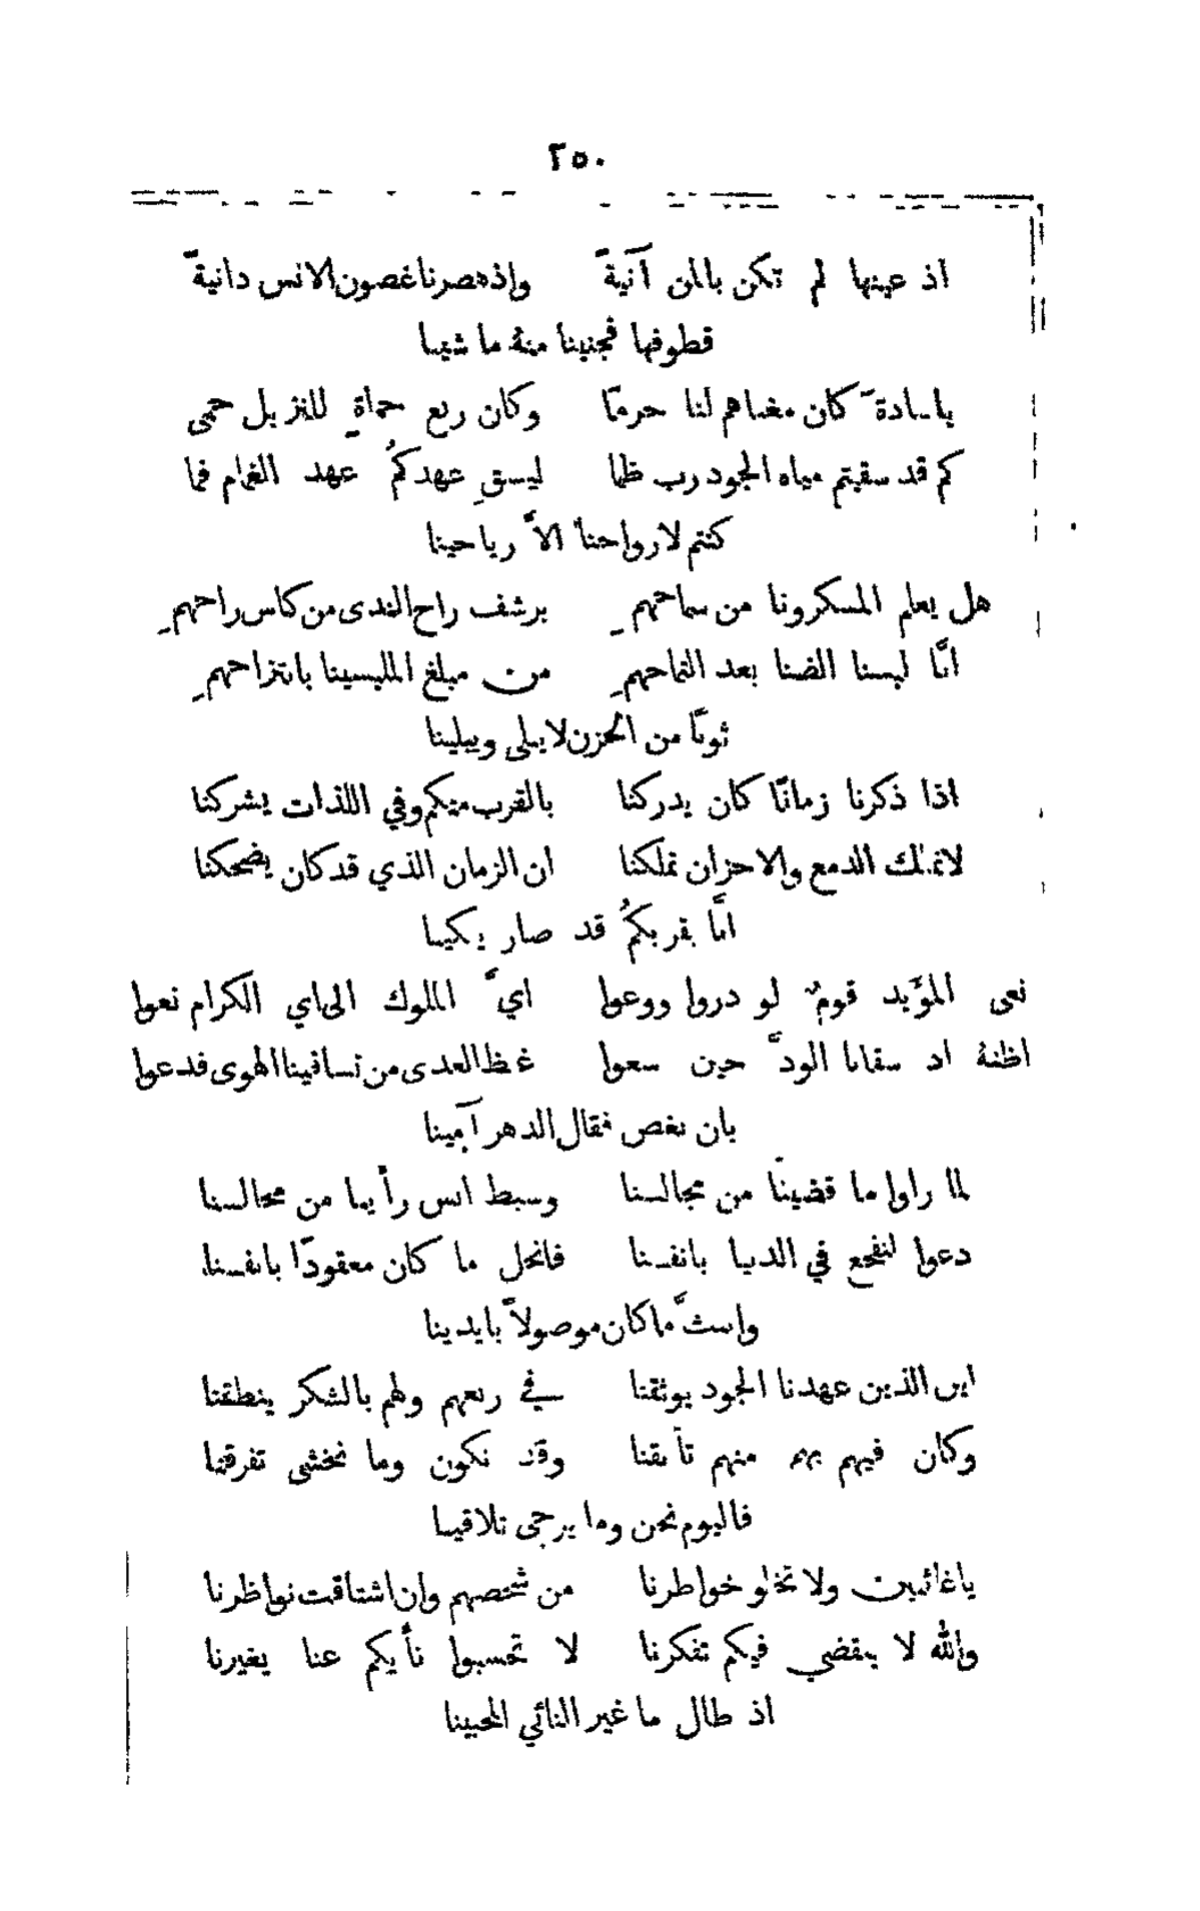 ٢٥٠
اذ عينها لم تكن بالمن آنيةً واذ هصرنا غصون الانس دانيةً
قطوفها فجنينا منهُ ما شينا
يا سادةً كان مغناهم لنا حرمًا وكان ربع حماةٍ للنزيل حمى
كم قد سقيتم مياه الجود رب ظما ليسقِ عهدكمُ عهد الغمام فما
كنتم لارواحنا الاَّ رياحينا
هل يعلم المسكرونا من سماحهمِ برشف راح الندى من كاس راحهمِ
انَّا لبسنا الضنا بعد التماحهمِ من مبلغ الملبسينا بانتزاحهمِ
ثوبًا من الحزن لا يبلى ويبلينا
اذا ذكرنا زمانًا كان يدركنا بالقرب منكم وفي اللذات يشركنا
لا نملك الدمع والاحزان تملكنا ان الزمان الذي قد كان يضحكنا
انَّا بقربكمُ قد صار يبكينا
نعى المؤَيد قومٌ لو دروا ووعوا ايَّ الملوك الى اي الكرام نعوا
اظنهُ اذ سقانا الودَّ حين سعوا غيظ العدى من تساقينا الهوى فدعوا
بان نغص فقال الدهر آمينا
لما راوا ما قضينا من مجالسنا وسبط انس رأينا من مجالسنا
دعوا لنفجع في الدنيا بانفسنا فانحل ما كان معقودًا بانفسنا
وانبتَّ ما كان موصولاً بايدينا
اين الذين عهدنا الجود يوثقنا في ربعهم ولهم بالشكر ينطقنا
وكان فيهم بهم منهم تأنقنا وقد نكون وما نخشى تفرقنا
فاليوم نحن وما يرجى تلاقينا
يا غائبين ولا تخلو خواطرنا من شخصهم وان اشتاقت نواظرنا
والله لا ينقضي فيكم تفكرنا لا تحسبوا نأيكم عنا يغيرنا
اذ طال ما غير النائي المحبينا